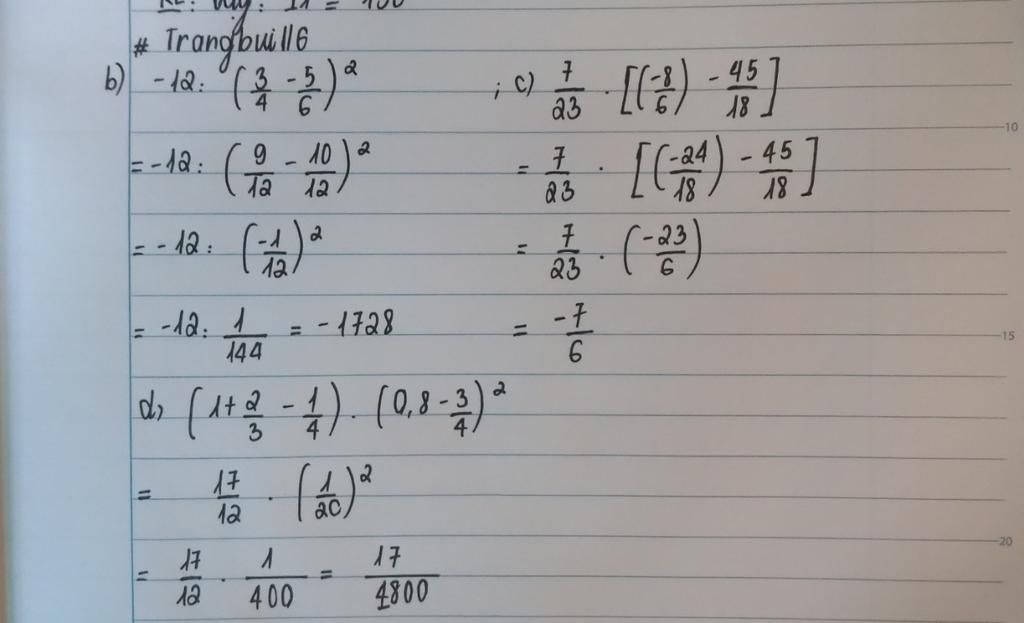 # Trangbui116
b) -12 : (3/4 - 5/6)² ; c) 7/23 . [(-8/6) - 45/18]
= -12 : (9/12 - 10/12)² = 7/23 . [(-24/18) - 45/18]
= -12 : (-1/12)² = 7/23 . (-23/6)
= -12 : 1/144 = -1728 = -7/6
d, (1 + 2/3 - 1/4) . (0,8 - 3/4)²
= 17/12 . (1/20)²
= 17/12 . 1/400 = 17/4800
10
15
20